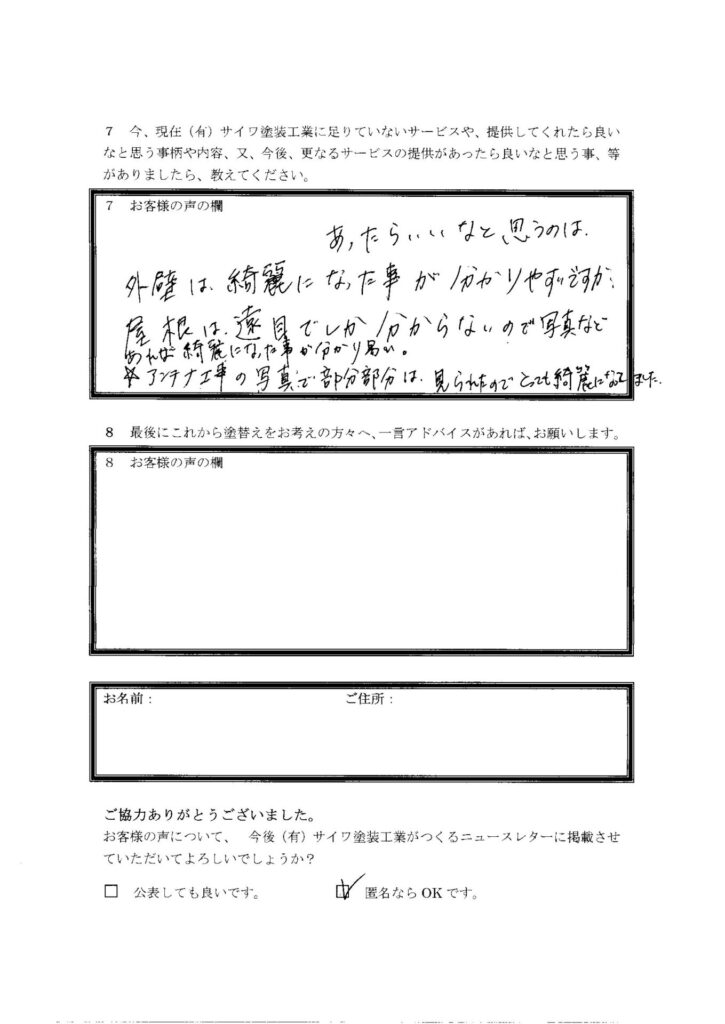 7 今、現在（有）サイワ塗装工業に足りていないサービスや、提供してくれたら良い
なと思う事柄や内容、又、今後、更なるサービスの提供があったら良いなと思う事、等
がありましたら、教えてください。
7 お客様の声の欄
あったらいいなと思うのは、
外壁は、綺麗になった事が分かりやすいですが、
屋根は、遠目でしか分からないので写真など
あれば綺麗になった事が分かり易い。
☆アンテナ工事の写真で部分部分は、見られたのでとっても綺麗になってました。
8 最後にこれから塗替えをお考えの方々へ、一言アドバイスがあれば、お願いします。
8 お客様の声の欄
お名前： ご住所：
ご協力ありがとうございました。
お客様の声について、 今後（有）サイワ塗装工業がつくるニュースレターに掲載させ
ていただいてよろしいでしょうか？
□ 公表しても良いです。 ☑ 匿名なら OK です。